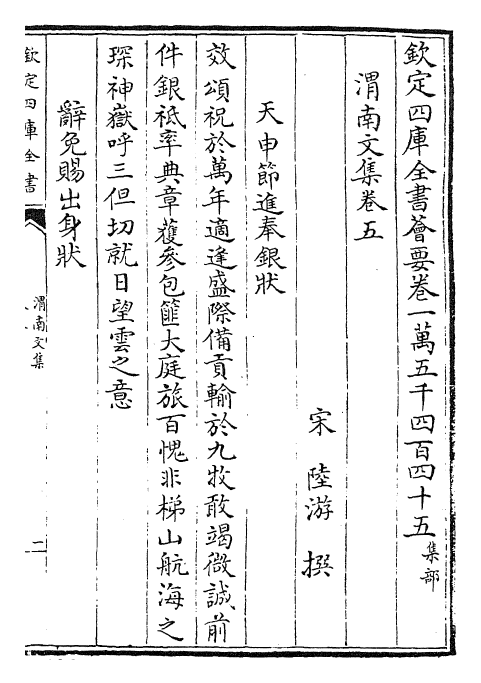 欽定四庫全書薈要卷一萬五千四百四十五 集部
渭南文集卷五
宋 陸游 撰
天申節進奉銀狀
效頌祝於萬年適逢盛際備貢輸於九牧敢竭微誠前
件銀祗率典章獲參包篚大庭旅百愧非梯山航海之
琛神嶽呼三但切就日望雲之意
辭免賜出身狀
欽定四庫全書
渭南文集